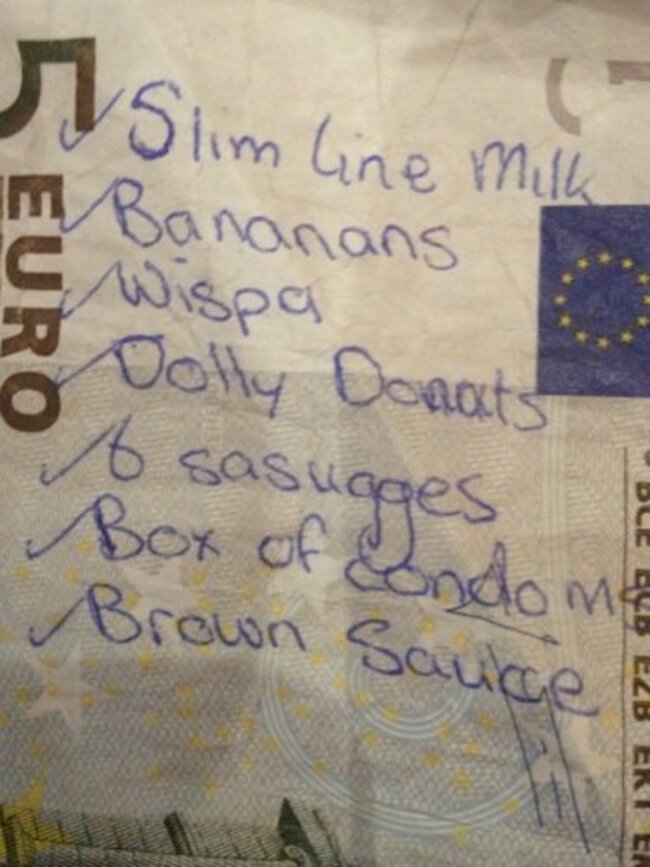 5 EURO
✓ Slim Line Milk
✓ Bananans
✓ Wispa
✓ Dolly Donats
✓ 6 sasugges
✓ Box of condom
✓ Brown Sauice
BCE ECB EZB EKT